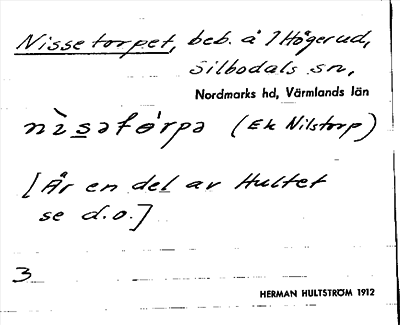 Nissetorpet, beb. å 7 Högerud,
Silbodals sn,
Nordmarks hd, Värmlands län
nìsətórpə (Ek Nilstorp)
[Är en del av Hultet
se d.o.]
3
HERMAN HULTSTRÖM 1912